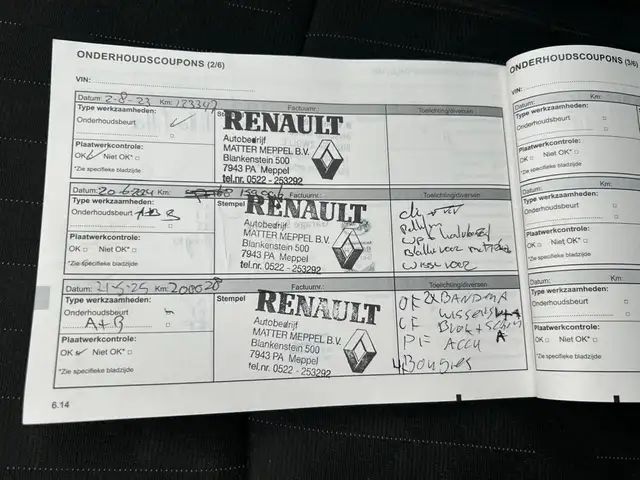 ONDERHOUDSCOUPONS (2/6)
VIN:
Datum: 2-8-23 Km: 123347 Factuurnr.: Toelichting/diversen
Type werkzaamheden: Stempel
Onderhoudsbeurt
Plaatwerkcontrole:
OK Niet OK*
*Zie specifieke bladzijde
RENAULT
Autobedrijf
MATTER MEPPEL B.V.
Blankenstein 500
7943 PA Meppel
tel.nr. 0522 - 253292
Datum: 20-6-2024 Km: Factuurnr.: Toelichting/diversen
Type werkzaamheden:
Onderhoudsbeurt A+B
Plaatwerkcontrole:
OK Niet OK*
*Zie specifieke bladzijde
RENAULT
Autobedrijf
MATTER MEPPEL B.V.
Blankenstein 500
7943 PA Meppel
tel.nr. 0522 - 253292
voor
Datum: 21-5-25 Km: 200028 Factuurnr.: Toelichting/diversen
Type werkzaamheden: Stempel
Onderhoudsbeurt
A+B
Plaatwerkcontrole:
OK Niet OK*
*Zie specifieke bladzijde
RENAULT
Autobedrijf
MATTER MEPPEL B.V.
Blankenstein 500
7943 PA Meppel
tel.nr. 0522 - 253292
OF 2x BANDEN A
CF
PF ACCU
4 Bougies
6.14
ONDERHOUDSCOUPONS (3/6)
VIN:
Datum: Km:
Type werkzaamheden:
Onderhoudsbeurt
Plaatwerkcontrole:
OK Niet OK*
*Zie specifieke bladzijde
Datum: Km:
Type werkzaamheden:
Onderhoudsbeurt
Plaatwerkcontrole:
OK Niet OK*
*Zie specifieke bladzijde
Datum: Km:
Type werkzaamheden:
Onderhoudsbeurt
Plaatwerkcontrole:
OK Niet OK*
*Zie specifieke bladzijde